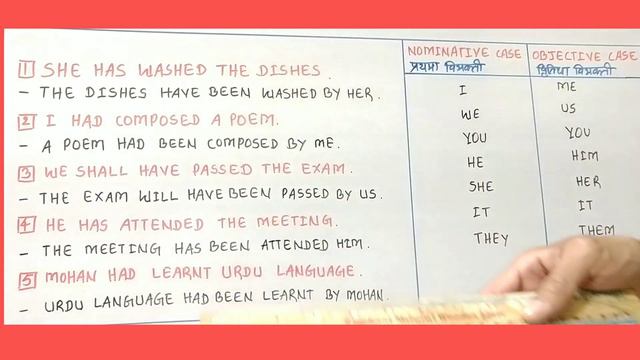 1 SHE HAS WASHED THE DISHES.
- THE DISHES HAVE BEEN WASHED BY HER.
2 I HAD COMPOSED A POEM.
- A POEM HAD BEEN COMPOSED BY ME.
3 WE SHALL HAVE PASSED THE EXAM.
- THE EXAM WILL HAVE BEEN PASSED BY US.
4 HE HAS ATTENDED THE MEETING.
- THE MEETING HAS BEEN ATTENDED HIM.
5 MOHAN HAD LEARNT URDU LANGUAGE.
- URDU LANGUAGE HAD BEEN LEARNT BY MOHAN.
NOMINATIVE CASE OBJECTIVE CASE
प्रथमा विभक्ती द्वितिया विभक्ती
I ME
WE US
YOU YOU
HE HIM
SHE HER
IT IT
THEY THEM